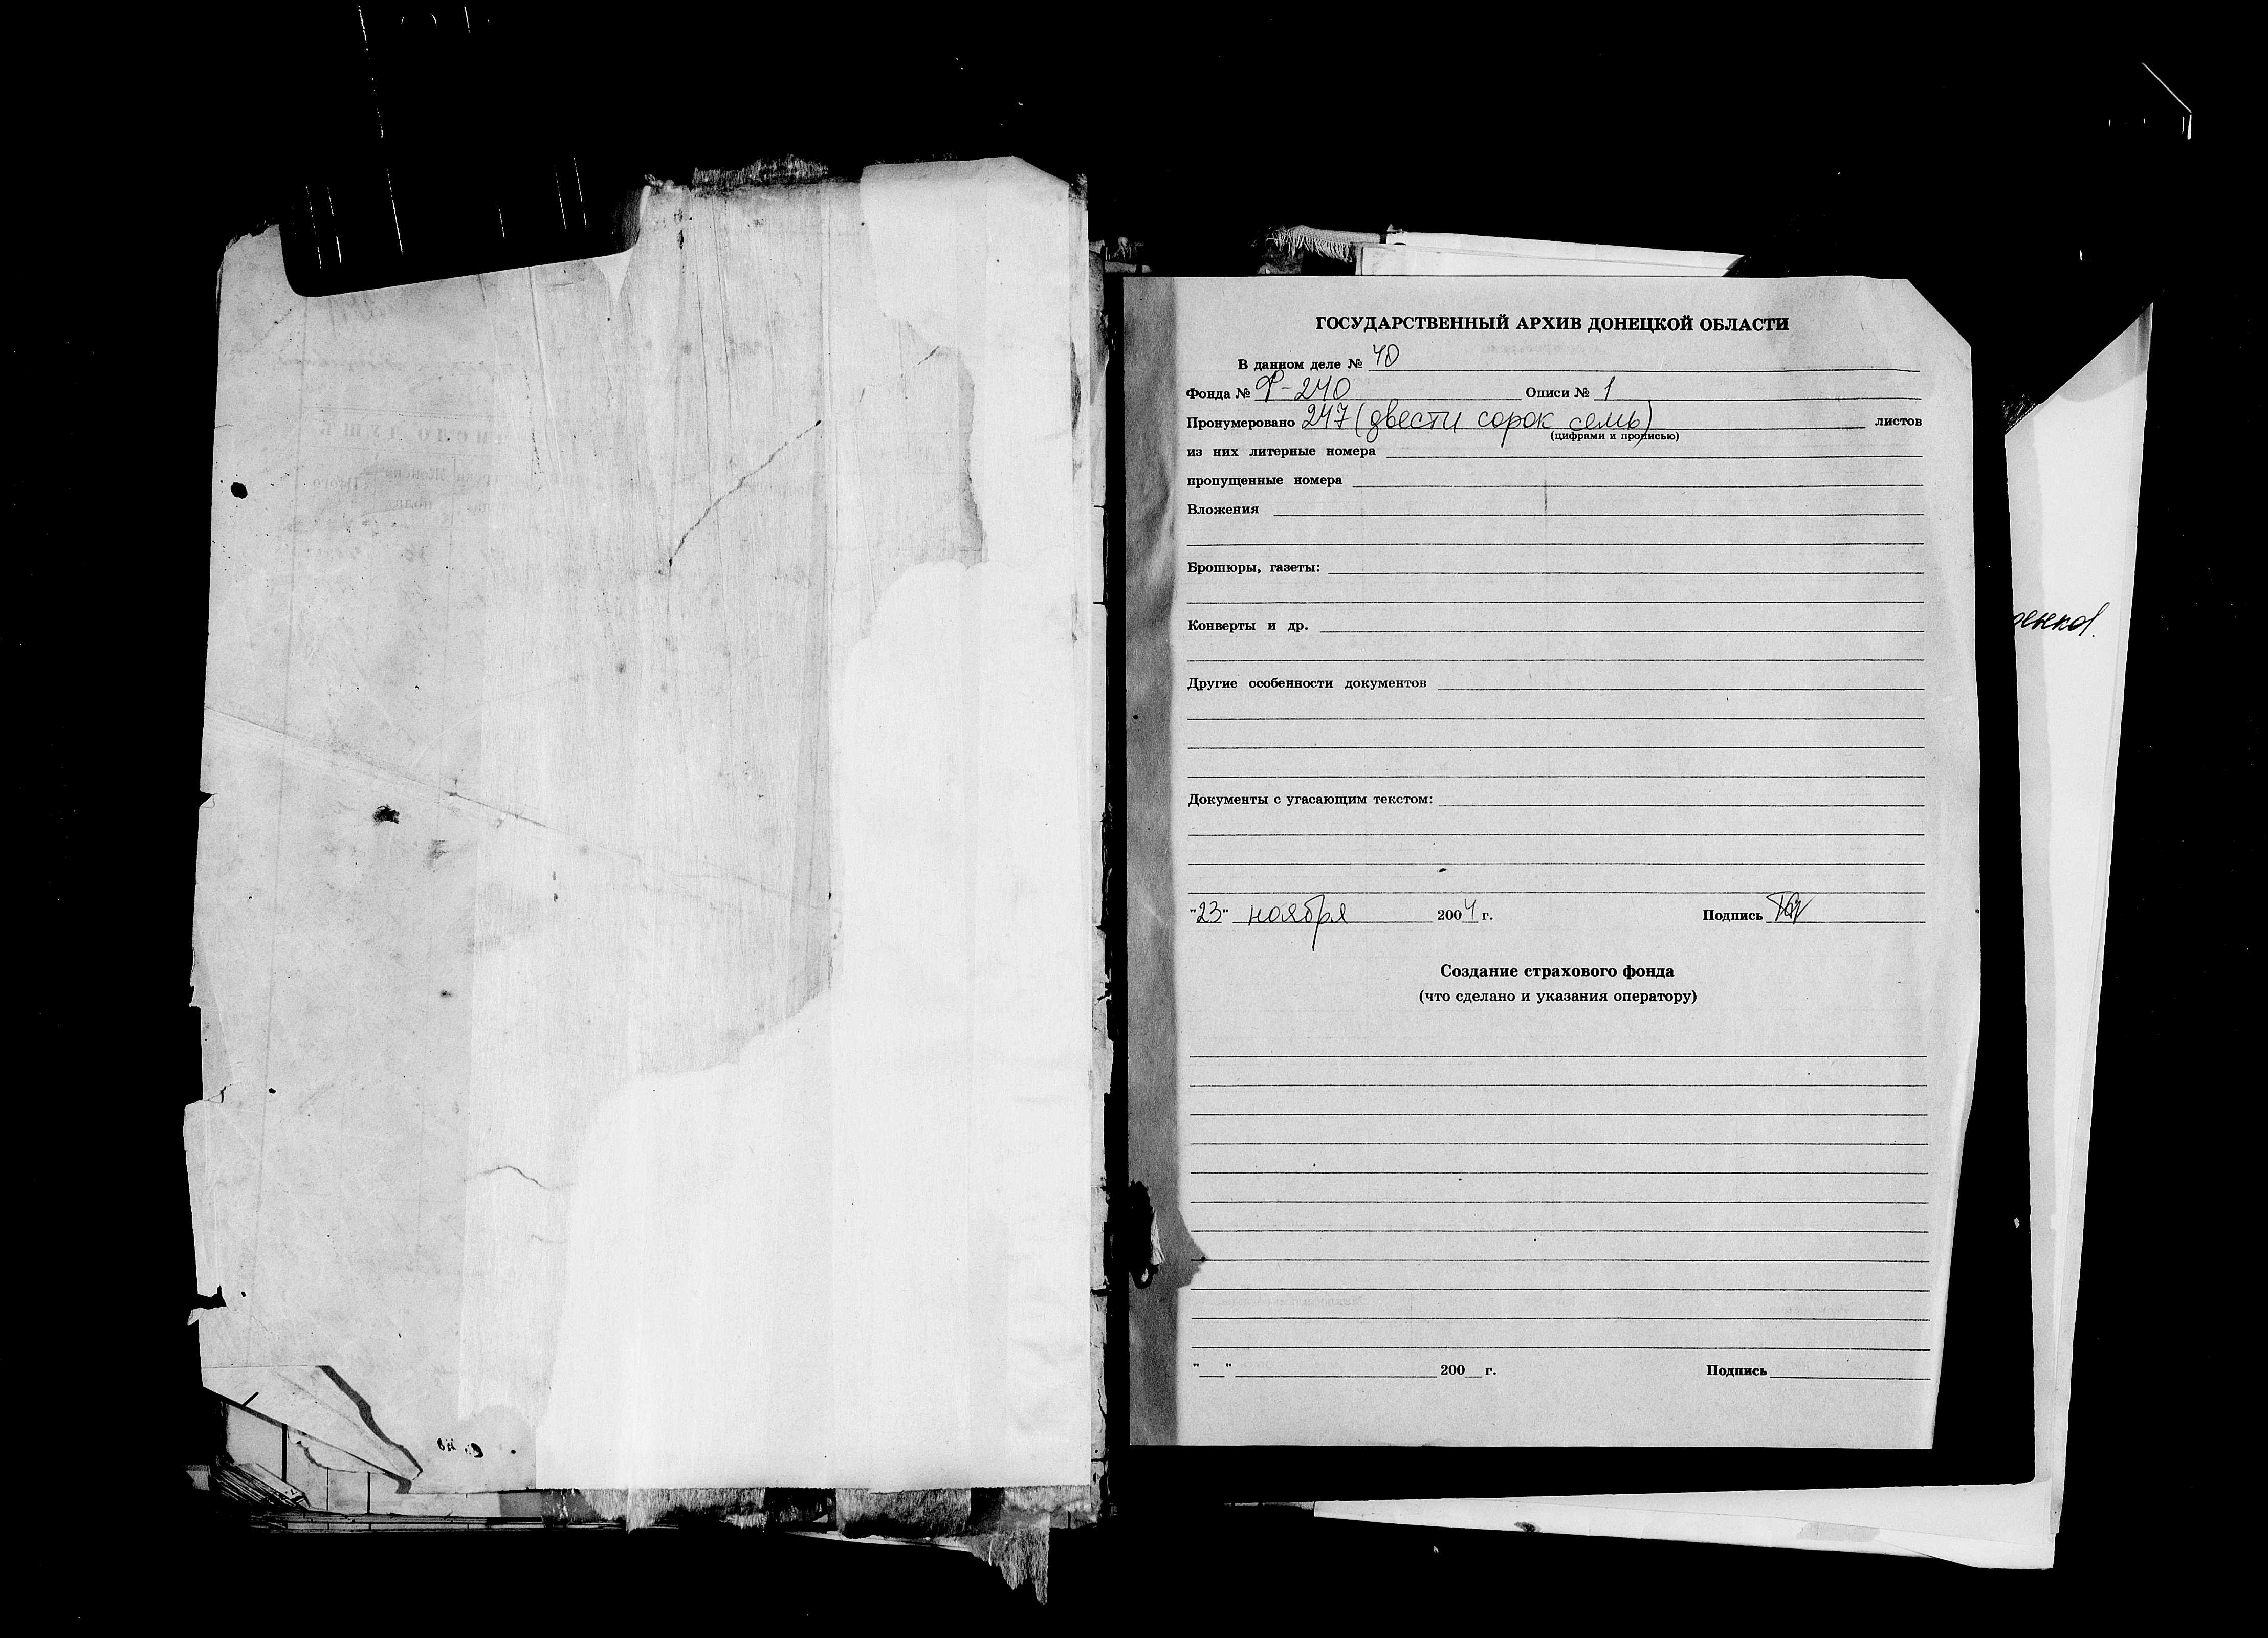 ГОСУДАРСТВЕННЫЙ АРХИВ ДОНЕЦКОЙ ОБЛАСТИ
В данном деле № 40
Фонда № Ф-240 Описи № 1
Пронумеровано 247 (двести сорок семь) листов
(цифрами и прописью)
из них литерные номера
пропущенные номера
Вложения
Брошюры, газеты:
Конверты и др.
Другие особенности документов
Документы с угасающим текстом:
"23" ноября 2004 г. Подпись
Создание страхового фонда
(что сделано и указания оператору)
"__" 200__ г. Подпись